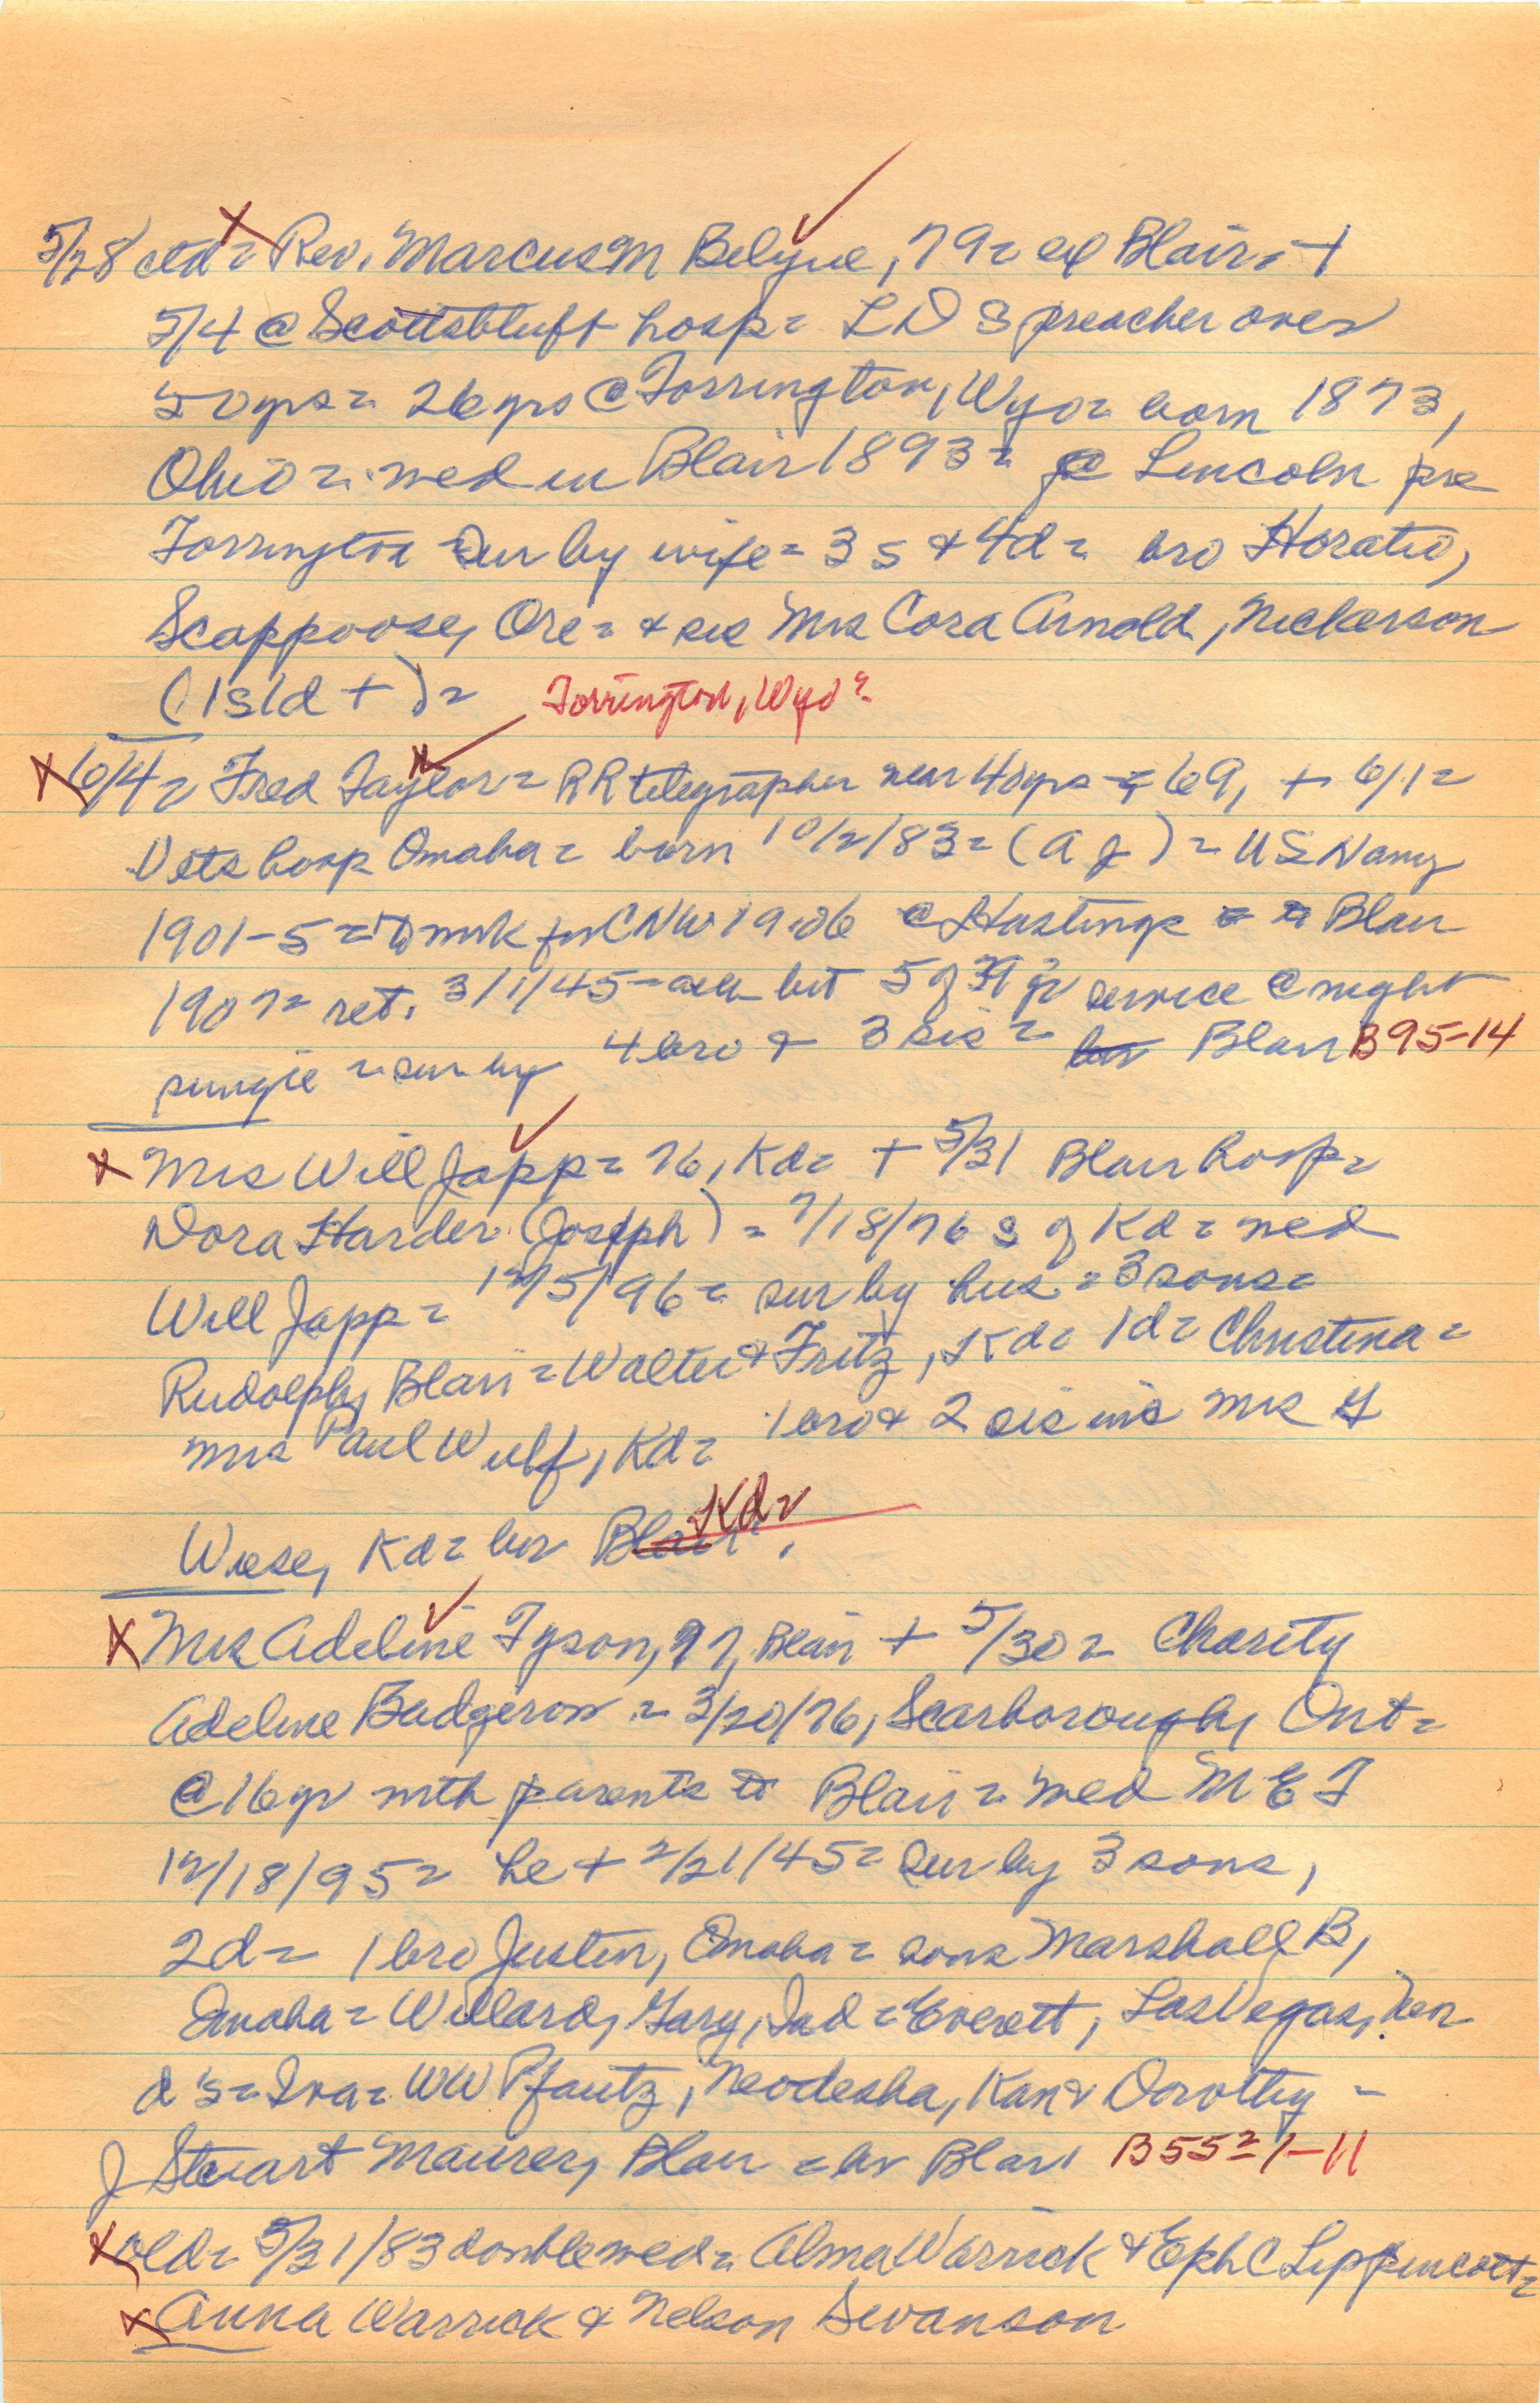 5/28 ctd = Rev. Marcus M Belyue, 79 = ex Blair = +
5/4 @ Scottsbluff hosp = LDS preacher over
50 yrs = 26 yrs @ Torrington, Wyo = born 1873,
Ohio = wed in Blair 1893 = @ Lincoln pre
Torrington = sur by wife = 3 s & 4 d = bro Horatio,
Scappoose, Ore = & sis Mrs Cora Arnold, Nickerson
(1s 1d +) = Torrington, Wyo =
6/4 = Fred Taylor = RR telegrapher near 40 yrs = 69, + 6/1 =
Vets hosp Omaha = born 10/2/83 = (A J) = US Navy
1901-5 = to work for CNW 1906 @ Hastings = Blair
1907 = ret. 3/1/45 = all but 5 of 39 yr service @ night
single = sur by 4 bro & 3 sis = bur Blair B95-14
Mrs Will Japp = 76, Kd = + 5/31 Blair hosp =
Dora Harder (Joseph) = 7/18/76 s of Kd = wed
Will Japp = 12/5/96 = sur by hus = 3 sons =
Rudolph, Blair = Walter & Fritz, Kd = 1d = Christina =
Mrs Paul Wulf, Kd = 1 bro & 2 sis inc Mrs G
Wiese, Kd = bur Blair Kd =
Mrs Adeline Tyson, 77, Blair + 5/30 = Charity
Adeline Badgerow = 3/20/76, Scarborough, Ont =
@ 16 yr with parents to Blair = wed M E T
12/18/95 = he + 2/21/45 = sur by 3 sons,
2d = 1 bro Justin, Omaha = sons Marshall B,
Omaha = Willard, Gary, Ind = Everett, Las Vegas, Nev
d's = Iva = WW Pfautz, Neodesha, Kan & Dorothy =
J Stewart Maurer, Blair = bur Blair B552=1-11
old = 5/31/83 double wed = Alma Warrick & Eph C Lippincott =
Anna Warrick & Nelson Swanson